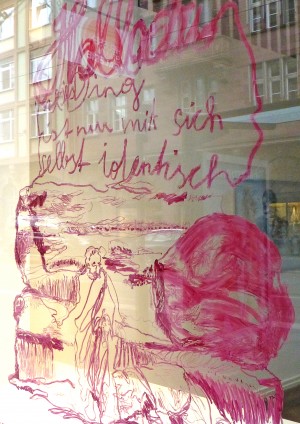 ein Ding
ist nur mit sich
selbst identisch